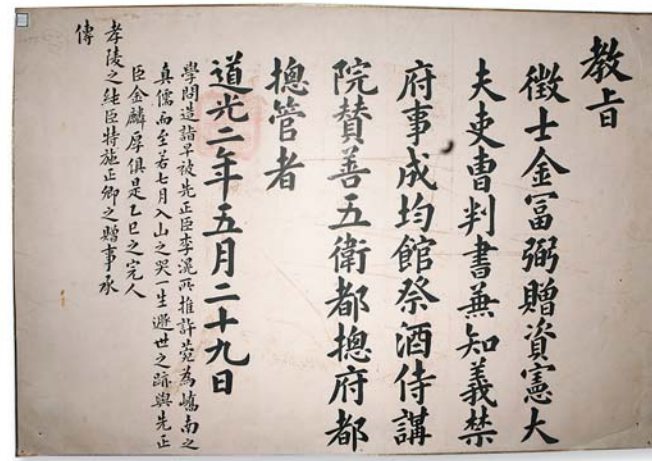 教旨
徵士金富弼贈資憲大
夫吏曺判書兼知義禁
府事成均館祭酒侍講
院賛善五衛都摠府都
摠管者
道光二年五月二十九日
學問造詣早被先正臣李滉所推許菀為嶠南之
真儒而至若七月入山之哭一生遯世之跡與先正
臣金麟厚俱是乙巳之完人
孝陵之純臣特施正卿之贈事承
傳